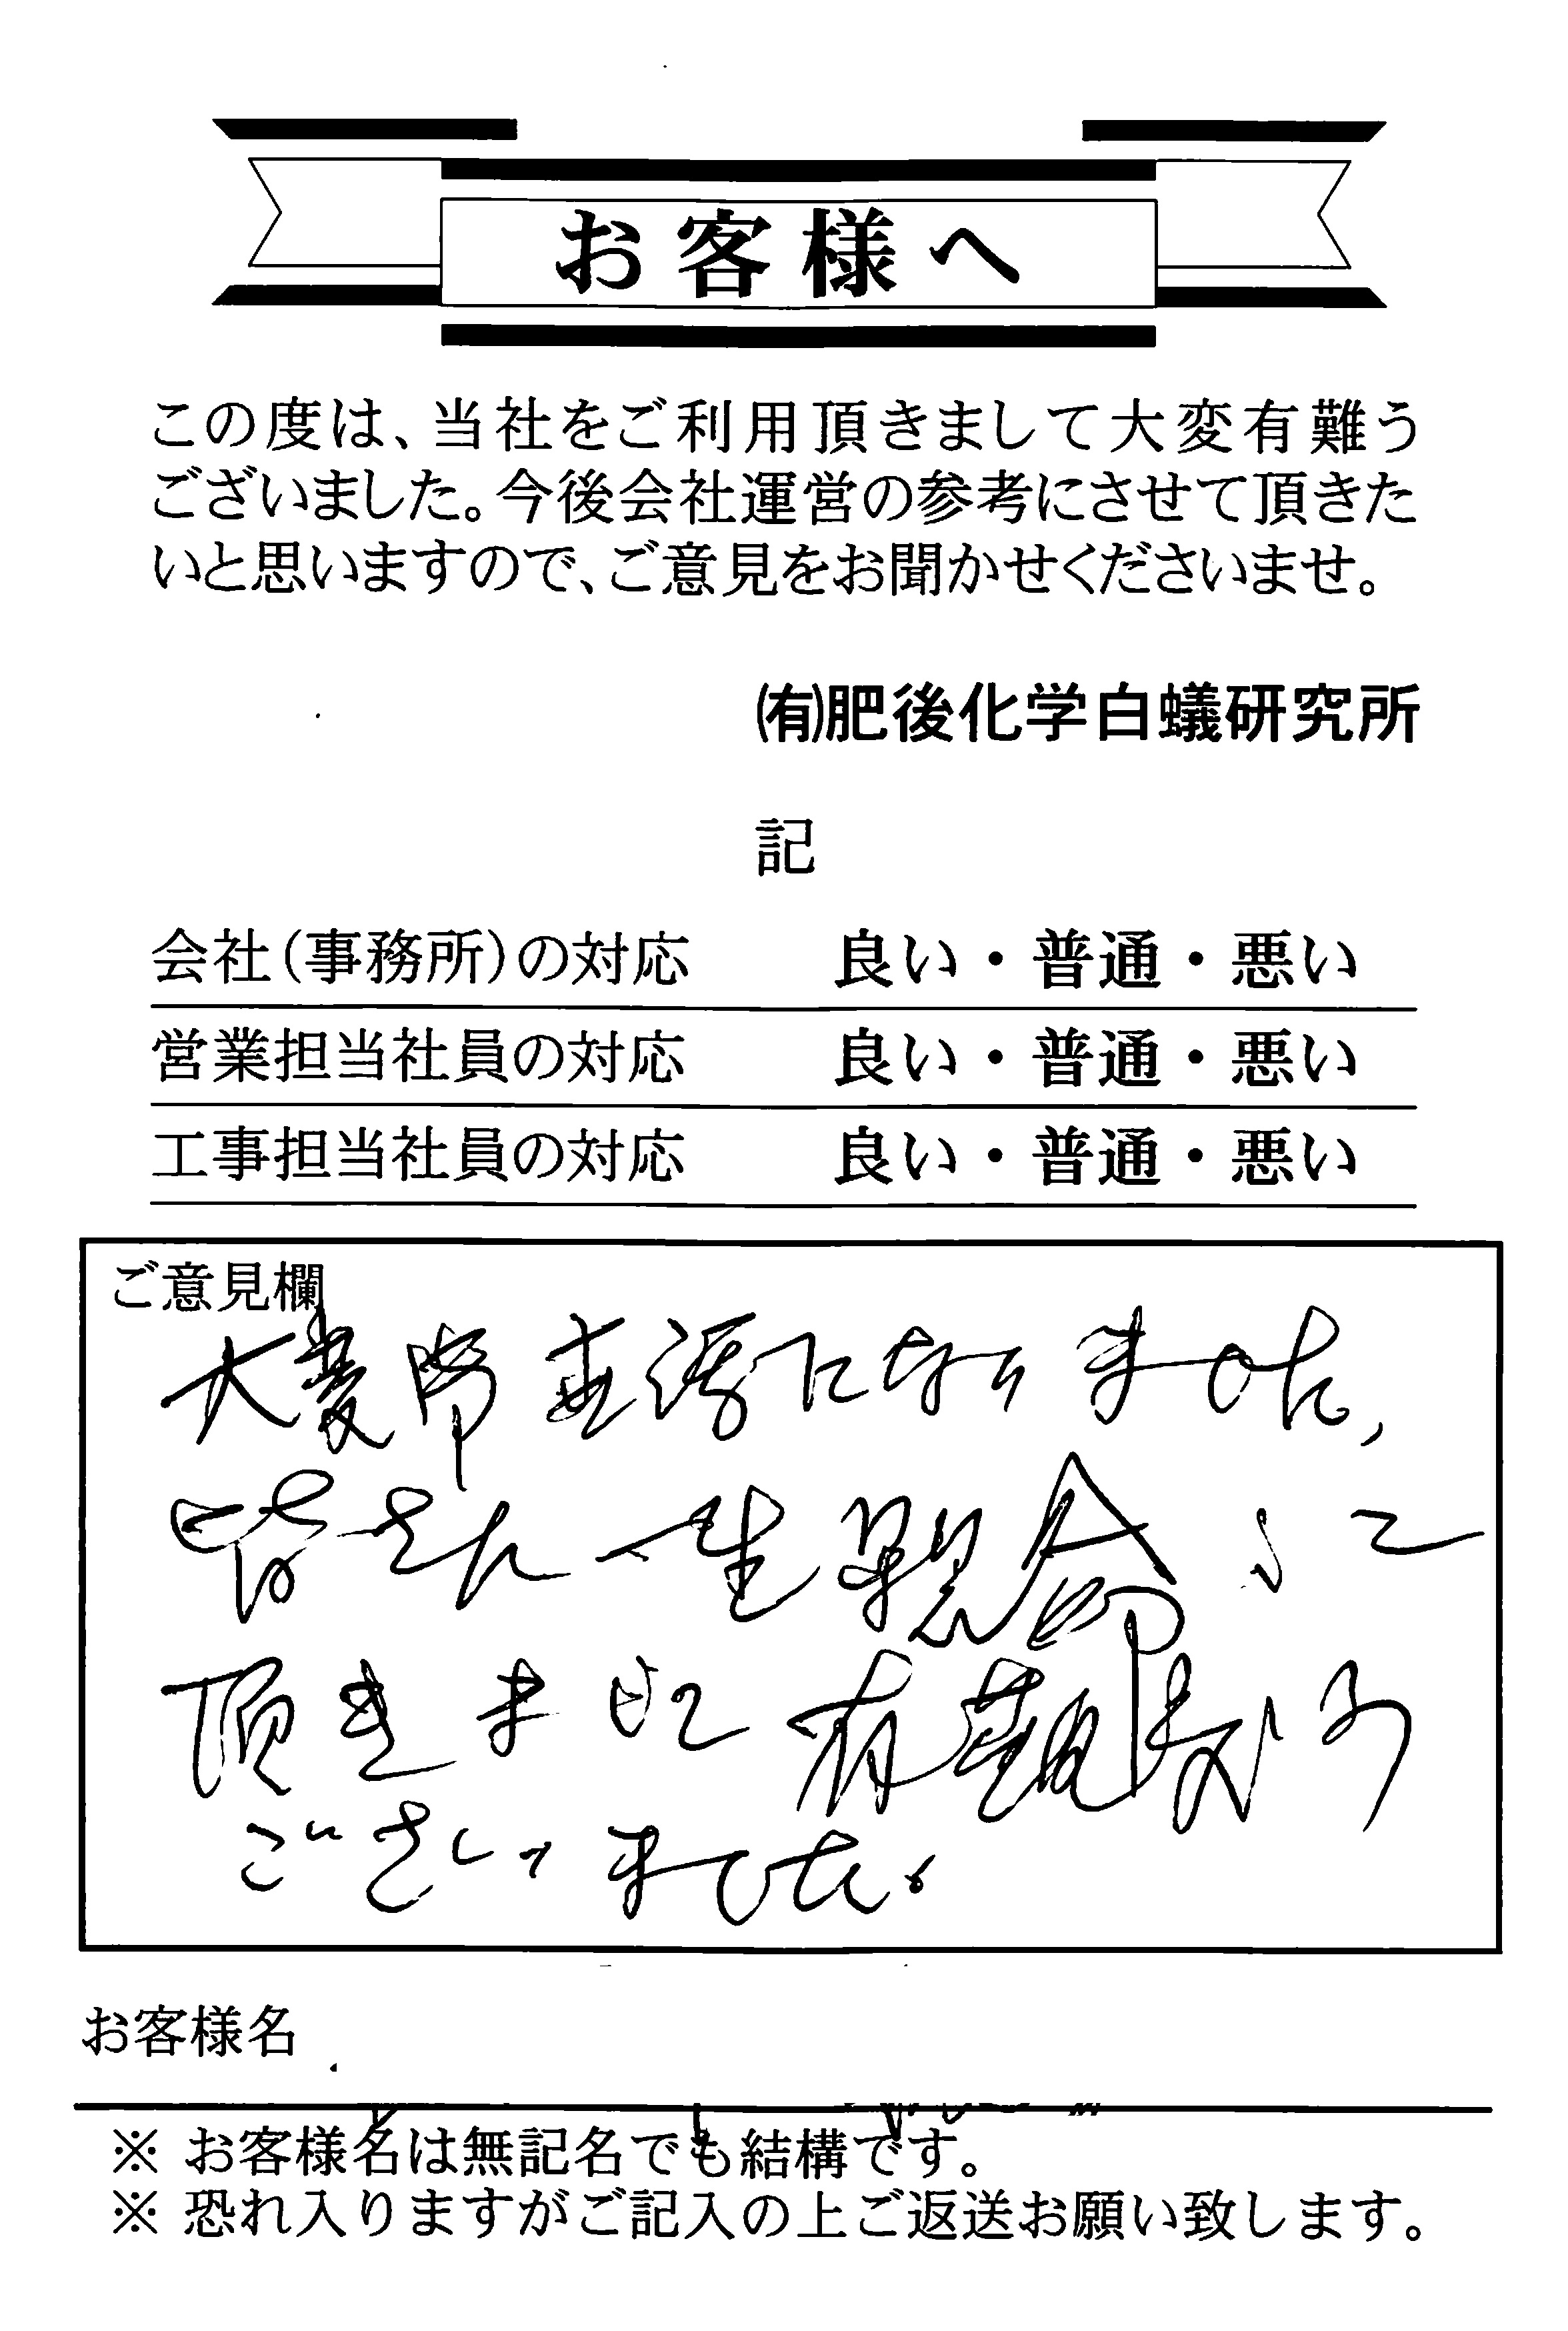 お客様へ
この度は、当社をご利用頂きまして大変有難う
ございました。今後会社運営の参考にさせて頂きた
いと思いますので、ご意見をお聞かせくださいませ。
㈲肥後化学白蟻研究所
記
会社(事務所)の対応 良い・普通・悪い
営業担当社員の対応 良い・普通・悪い
工事担当社員の対応 良い・普通・悪い
ご意見欄
大変御世話になりました、
皆さん一生懸命して
頂きまして有難う
ございました。
お客様名
※ お客様名は無記名でも結構です。
※ 恐れ入りますがご記入の上ご返送お願い致します。